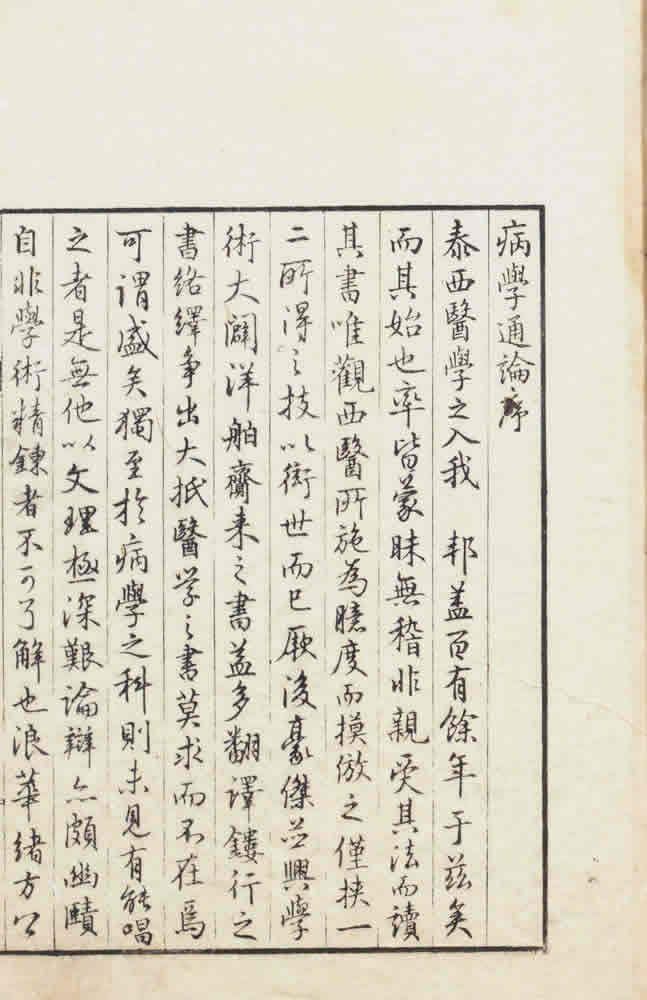 病學通論序
泰西醫學之入我　邦蓋百有餘年于茲矣
而其始也率皆蒙昧無稽非親受其法而讀
其書唯觀西醫所施為臆度而摸倣之僅挾一
二所得之技以衒世而已厥後豪傑並興學
術大闢洋舶齎来之書益多翻譯鏤行之
書絡繹争出大抵醫学之書莫求而不在焉
可謂盛矣獨至於病學之科則未見有能唱
之者是無他以文理極深艱論辯亦頗幽賾
自非學術精錬者不可了解也浪華緒方公